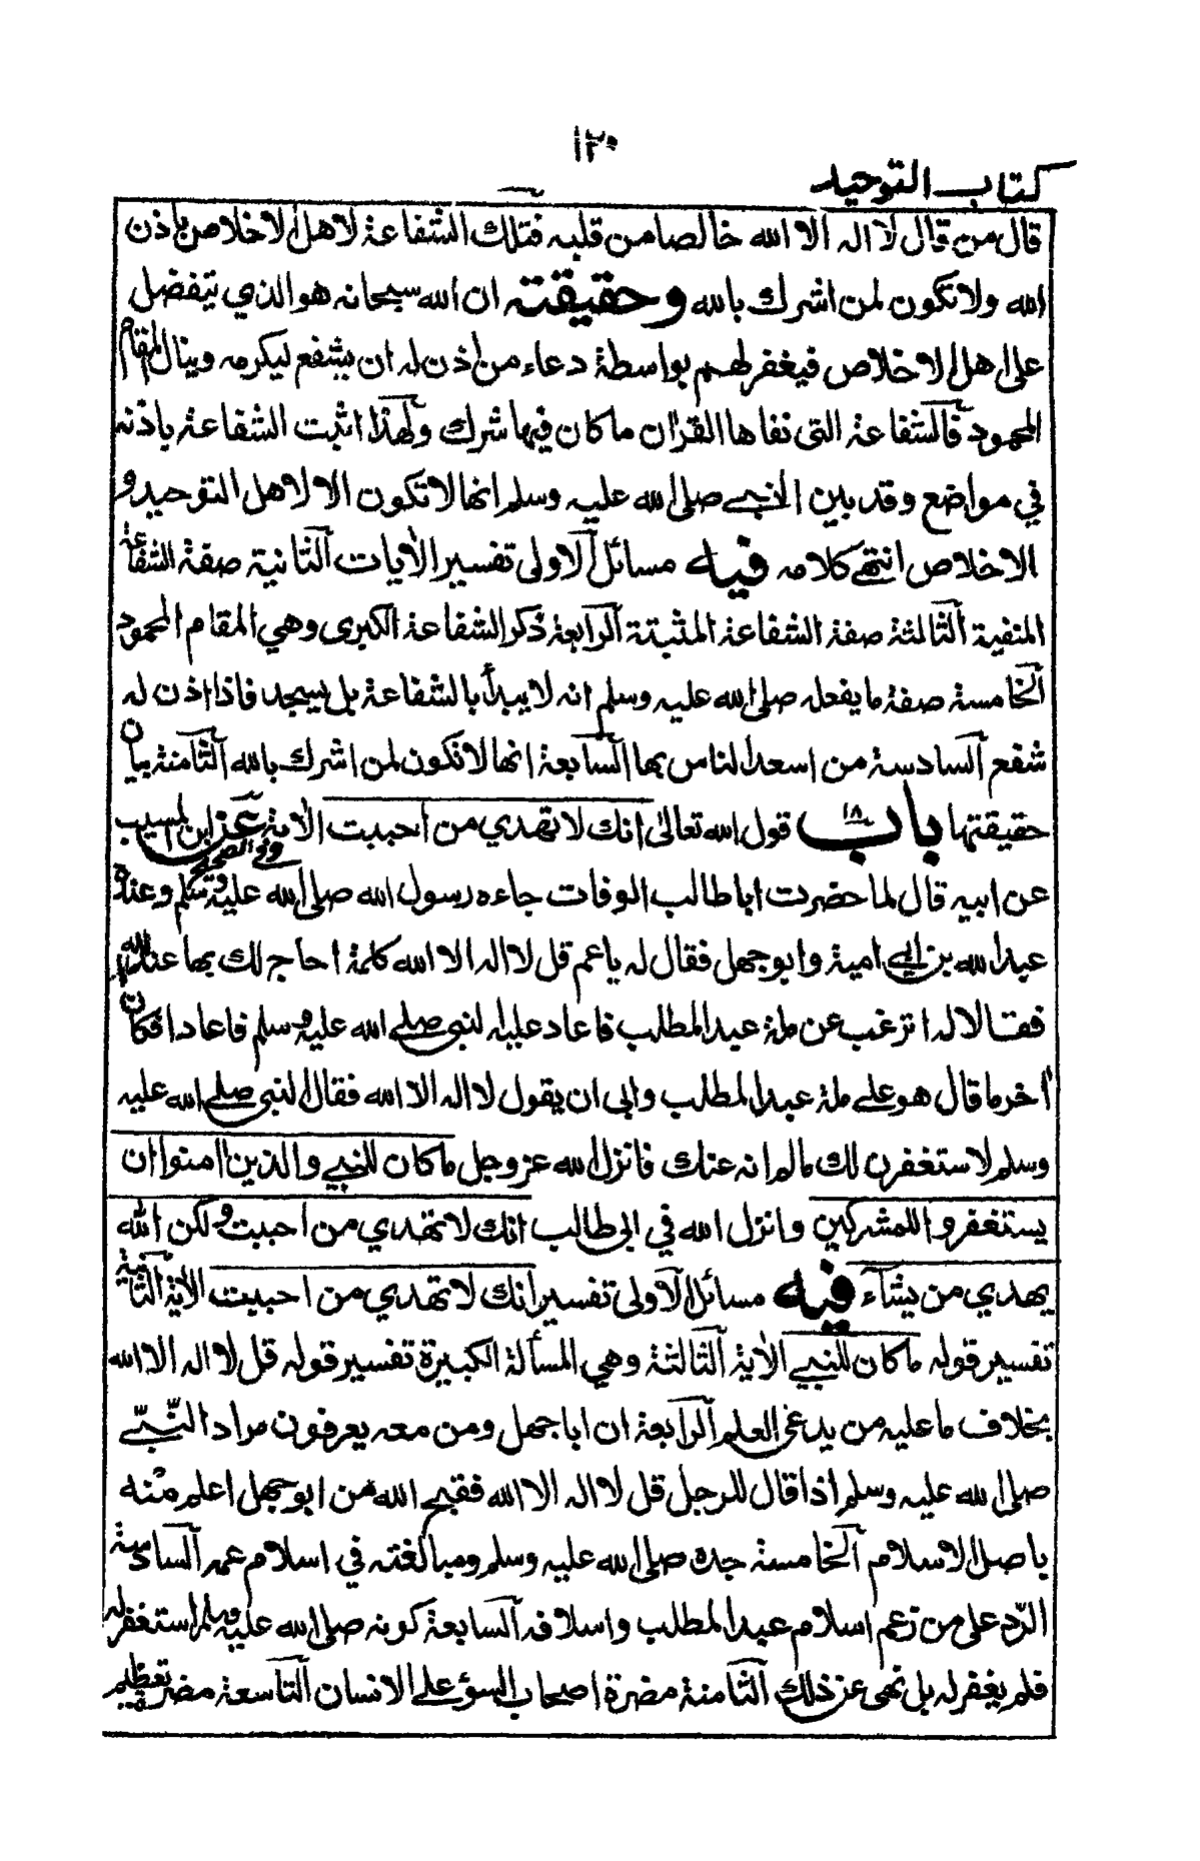 ١٢٠
كتاب التوحيد
قال من قال لا اله الا الله خالصا من قلبه فتلك الشفاعة لاهل الاخلاص باذن
الله ولا تكون لمن اشرك بالله وحقيقته ان الله سبحانه هو الذي يتفضل
على اهل الاخلاص فيغفر لهم بواسطة دعاء من اذن له ان يشفع ليكرمه وينال المقام
المحمود فالشفاعة التى نفاها القرآن ما كان فيها شرك ولهذا اثبت الشفاعة باذنه
في مواضع وقد بين النبي صلى الله عليه وسلم انها لا تكون الا لاهل التوحيد و
الاخلاص انتهى كلامه فيه مسائل الاولى تفسير الآيات الثانية صفة الشفاعة
المنفية الثالثة صفة الشفاعة المثبتة الرابعة ذكر الشفاعة الكبرى وهي المقام المحمود
الخامسة صفة ما يفعله صلى الله عليه وسلم انه لا يبدأ بالشفاعة بل يسجد فاذا اذن له
شفع السادسة من اسعد الناس بها السابعة انها لا تكون لمن اشرك بالله الثامنة بيان
حقيقتها باب ١٨ قول الله تعالى انك لا تهدي من احببت الآية وفي الصحيح عن ابن المسيب
عن ابيه قال لما حضرت ابا طالب الوفات جاءه رسول الله صلى الله عليه وسلم وعنده
عبد الله بن ابي امية وابو جهل فقال له يا عم قل لا اله الا الله كلمة احاج لك بها عند الله
فقالا له اترغب عن ملة عبد المطلب فاعاد عليه النبى صلى الله عليه وسلم فاعادا فكان
آخر ما قال هو على ملة عبد المطلب وابى ان يقول لا اله الا الله فقال النبى صلى الله عليه
وسلم لاستغفرن لك مالم انه عنك فانزل الله عز وجل ما كان للنبي والذين امنوا ان
يستغفروا للمشركين وانزل الله في ابى طالب انك لا تهدي من احببت ولكن الله
يهدي من يشآء فيه مسائل الاولى تفسير انك لا تهدي من احببت الآية الثانية
تفسير قوله ما كان للنبي الآية الثالثة وهي المسألة الكبيرة تفسير قوله قل لا اله الا الله
بخلاف ما عليه من يدعى العلم الرابعة ان ابا جهل ومن معه يعرفون مراد النّبيّ
صلى الله عليه وسلم اذا قال للرجل قل لا اله الا الله فقبح الله من ابو جهل اعلم منه
باصل الاسلام الخامسة جده صلى الله عليه وسلم ومبالغته في اسلام عمه السادسة
الرّد على من زعم اسلام عبد المطلب واسلافه السابعة كونه صلى الله عليه وسلم استغفر له
فلم يغفر له بل نهى عن ذلك الثامنة مضرة اصحاب السؤ على الانسان التاسعة مضرة تعظيم